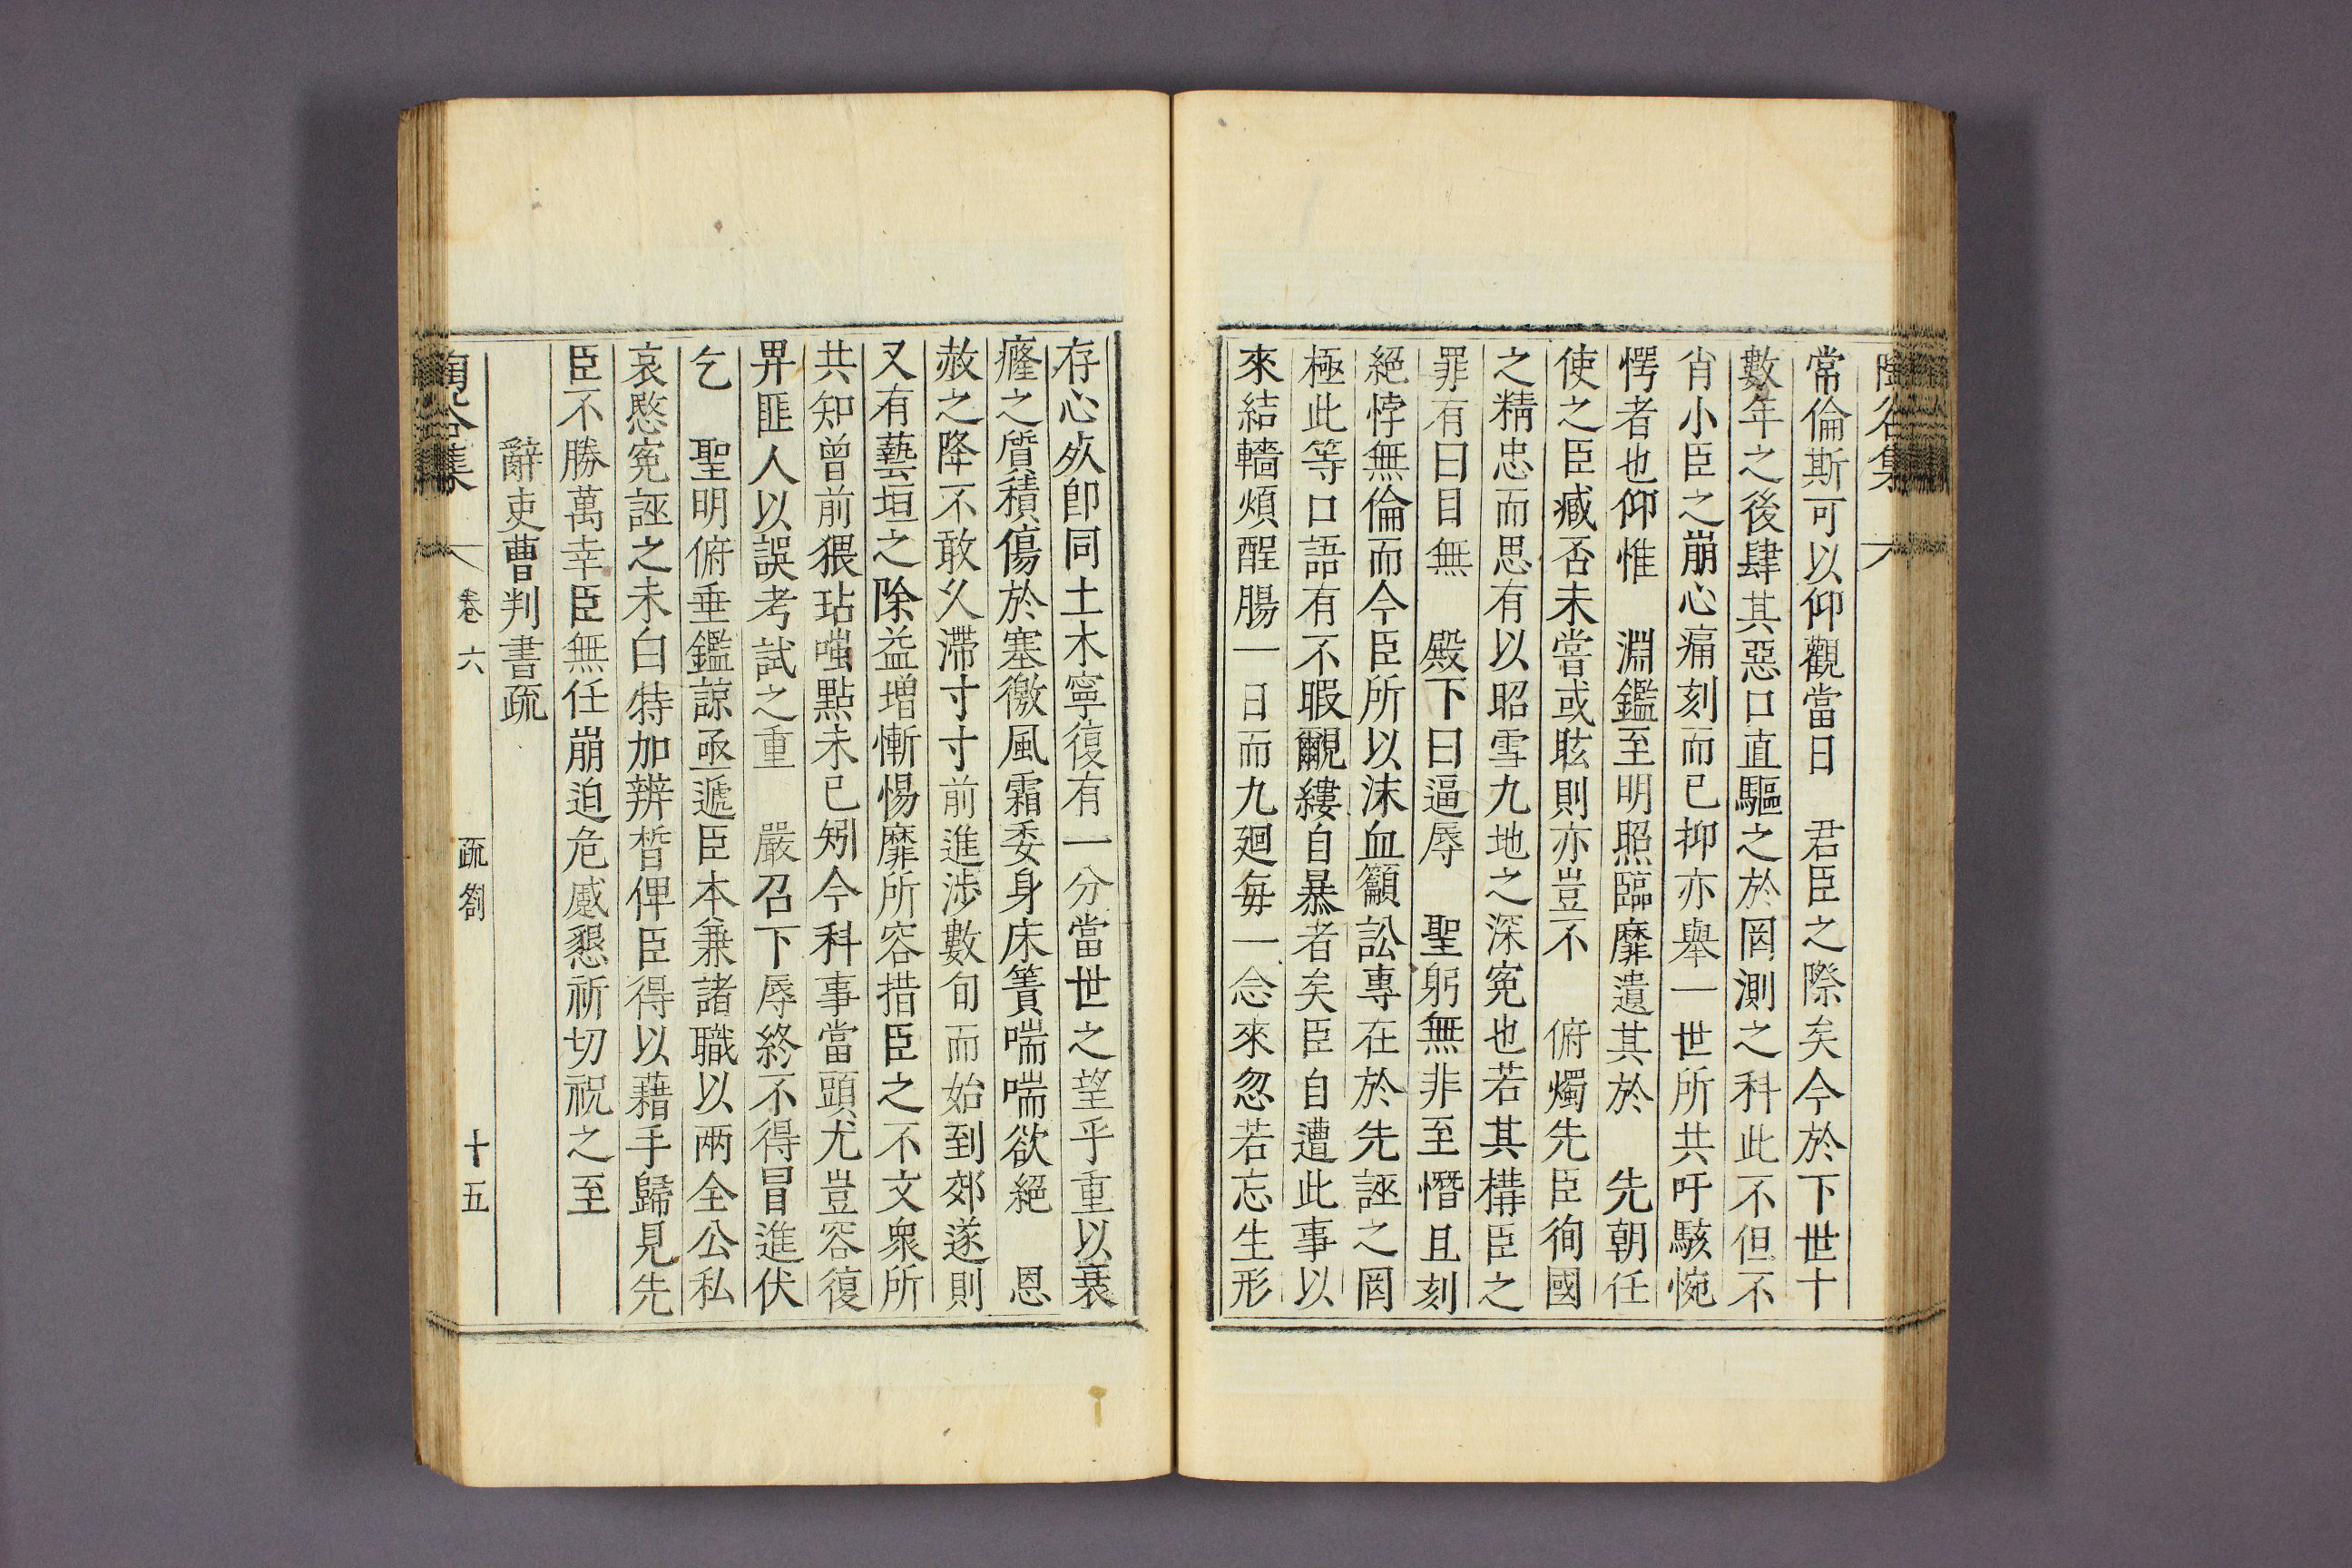 常倫斯可以仰觀當日　君臣之際矣今於下世十
數年之後肆其惡口直驅之於罔測之科此不但不
肖小臣之崩心痛刻而已抑亦舉一世所共吁駭惋
愕者也仰惟　淵鑑至明照臨靡遺其於　先朝任
使之臣臧否未嘗或眩則亦豈不　俯燭先臣徇國
之精忠而思有以昭雪九地之深冤也若其構臣之
罪有曰目無　殿下曰逼辱　聖躬無非至憯且刻
絕悖無倫而今臣所以沫血籲訟專在於先誣之罔
極此等口語有不暇覼縷自暴者矣臣自遭此事以
來結轖煩酲腸一日而九廻每一念來忽若忘生形
存心死卽同土木寧復有一分當世之望乎重以衰
癃之質積傷於塞徼風霜委身床簀喘喘欲絕　恩
赦之降不敢久滯寸寸前進涉數旬而始到郊遂則
又有藝垣之除益增慚惕靡所容措臣之不文衆所
共知曾前猥玷嗤點未已矧今科事當頭尤豈容復
畀匪人以誤考試之重　嚴召下辱終不得冒進伏
乞　聖明俯垂鑑諒亟遞臣本兼諸職以兩全公私
哀愍冤誣之未白特加辨晳俾臣得以藉手歸見先
臣不勝萬幸臣無任崩迫危蹙懇祈切祝之至
辭吏曹判書疏
卷六
疏箚
十五